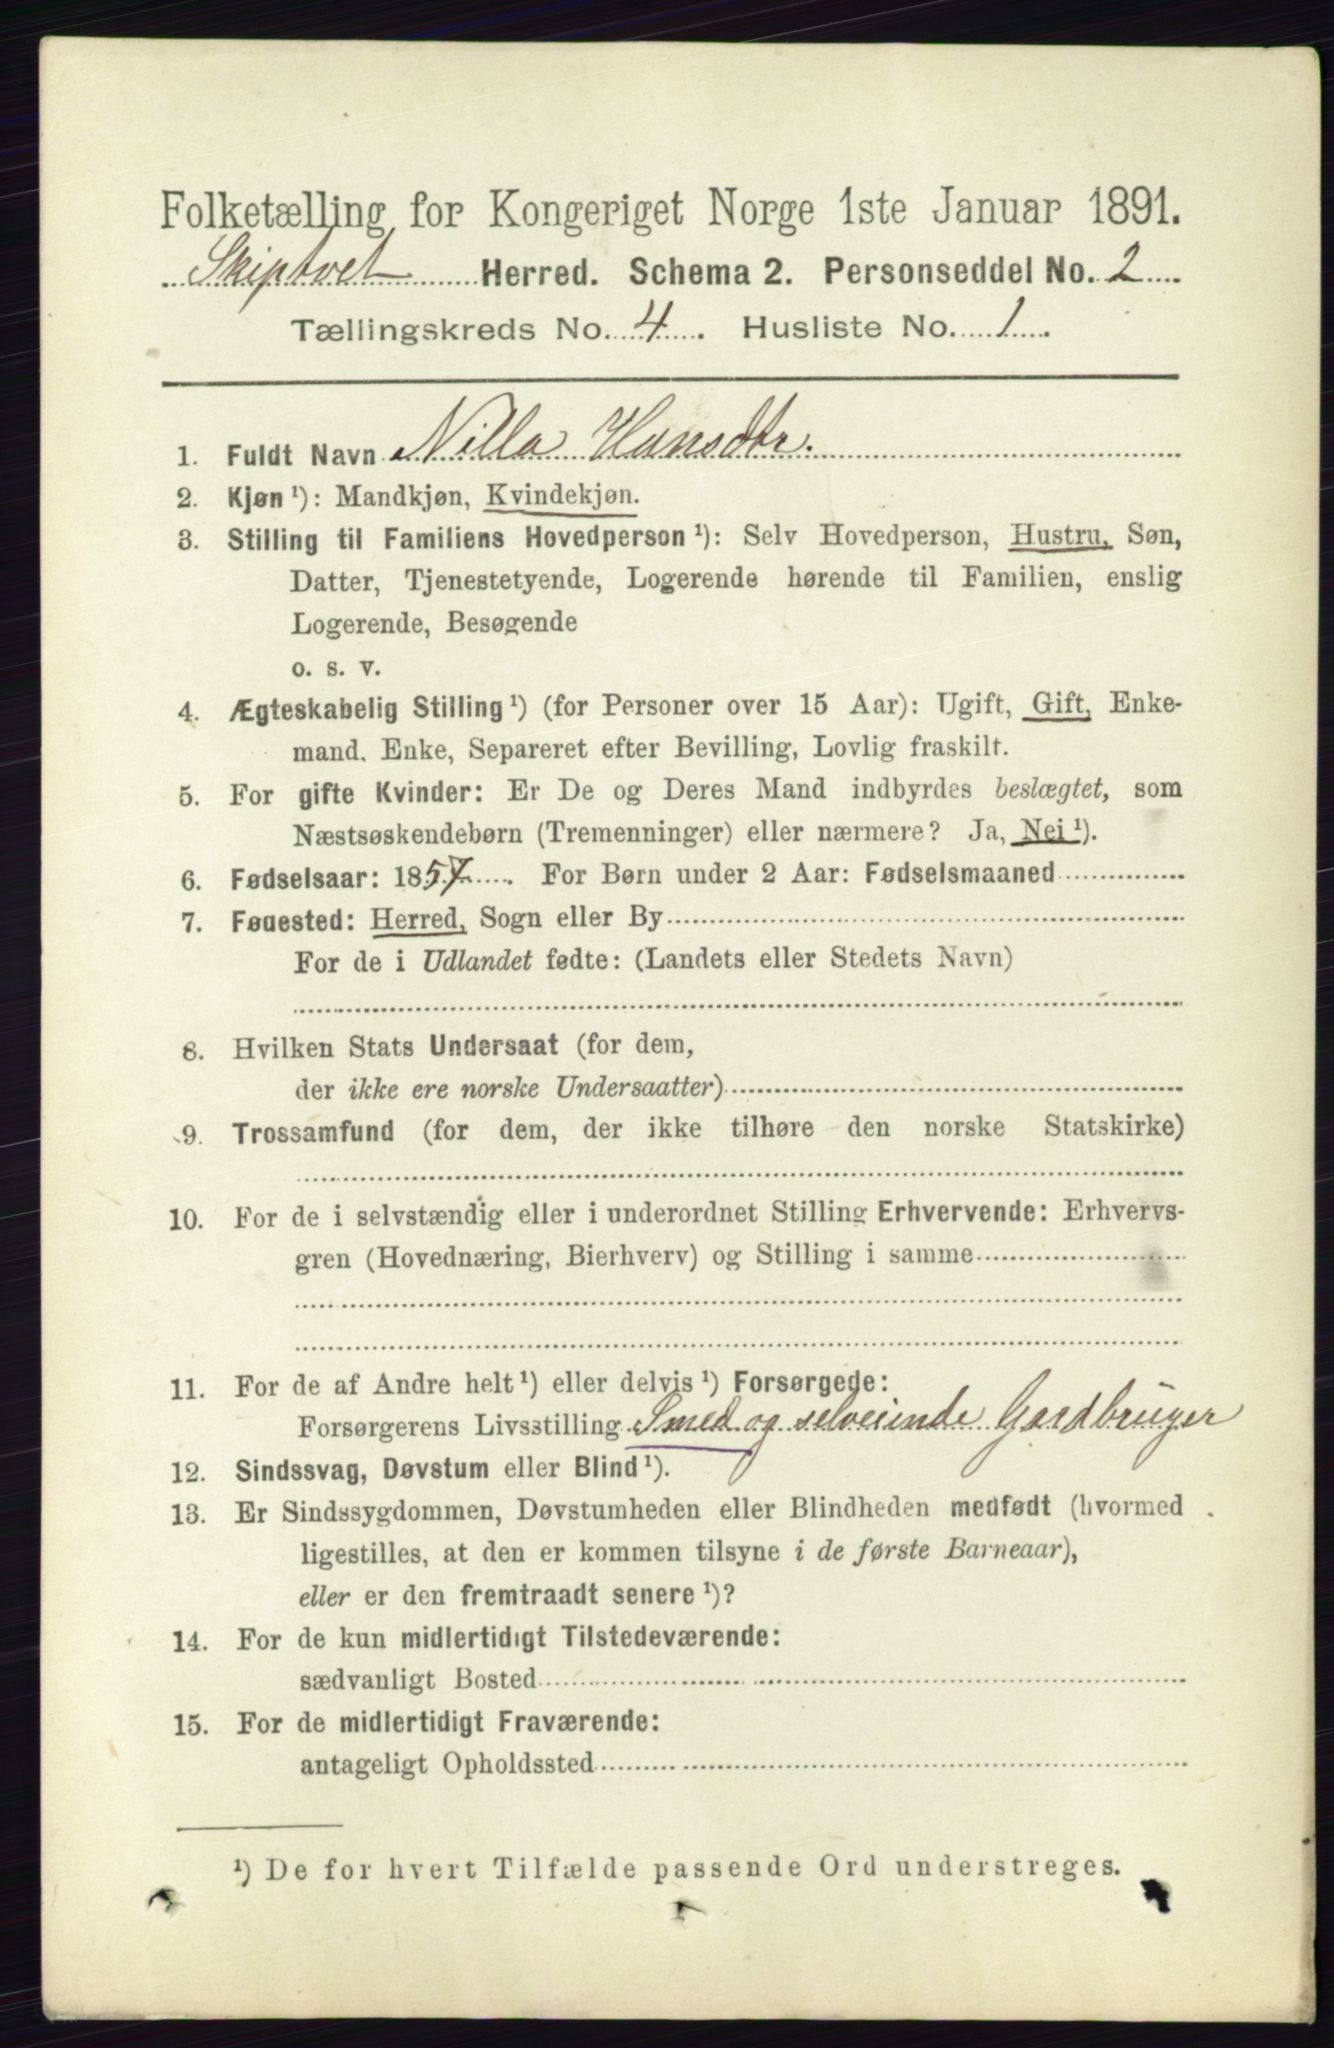 Folketælling for Kongeriget Norge 1ste Januar 1891.
Skiptvet Herred. Schema 2. Personseddel No. 2
Tællingskreds No. 4. Husliste No. 1.
1. Fuldt Navn Nilla Hansdtr.
2. Kjøn ¹): Mandkjøn, Kvindekjøn.
3. Stilling til Familiens Hovedperson ¹): Selv Hovedperson, Hustru, Søn,
Datter, Tjenestetyende, Logerende hørende til Familien, enslig
Logerende, Besøgende
o. s. v.
4. Ægteskabelig Stilling ¹) (for Personer over 15 Aar): Ugift, Gift, Enke-
mand, Enke, Separeret efter Bevilling, Lovlig fraskilt.
5. For gifte Kvinder: Er De og Deres Mand indbyrdes beslægtet, som
Næstsøskendebørn (Tremenninger) eller nærmere? Ja, Nei ¹).
6. Fødselsaar: 1857. For Børn under 2 Aar: Fødselsmaaned
7. Fødested: Herred, Sogn eller By
For de i Udlandet fødte: (Landets eller Stedets Navn)
8. Hvilken Stats Undersaat (for dem,
der ikke ere norske Undersaatter)
9. Trossamfund (for dem, der ikke tilhøre den norske Statskirke)
10. For de i selvstændig eller i underordnet Stilling Erhvervende: Erhvervs-
gren (Hovednæring, Bierhverv) og Stilling i samme
11. For de af Andre helt ¹) eller delvis ¹) Forsørgede:
Forsørgerens Livsstilling Smed og selveiende Gardbruger
12. Sindssvag, Døvstum eller Blind ¹).
13. Er Sindssygdommen, Døvstumheden eller Blindheden medfødt (hvormed
ligestilles, at den er kommen tilsyne i de første Barneaar),
eller er den fremtraadt senere ¹)?
14. For de kun midlertidigt Tilstedeværende:
sædvanligt Bosted
15. For de midlertidigt Fraværende:
antageligt Opholdssted
¹) De for hvert Tilfælde passende Ord understreges.